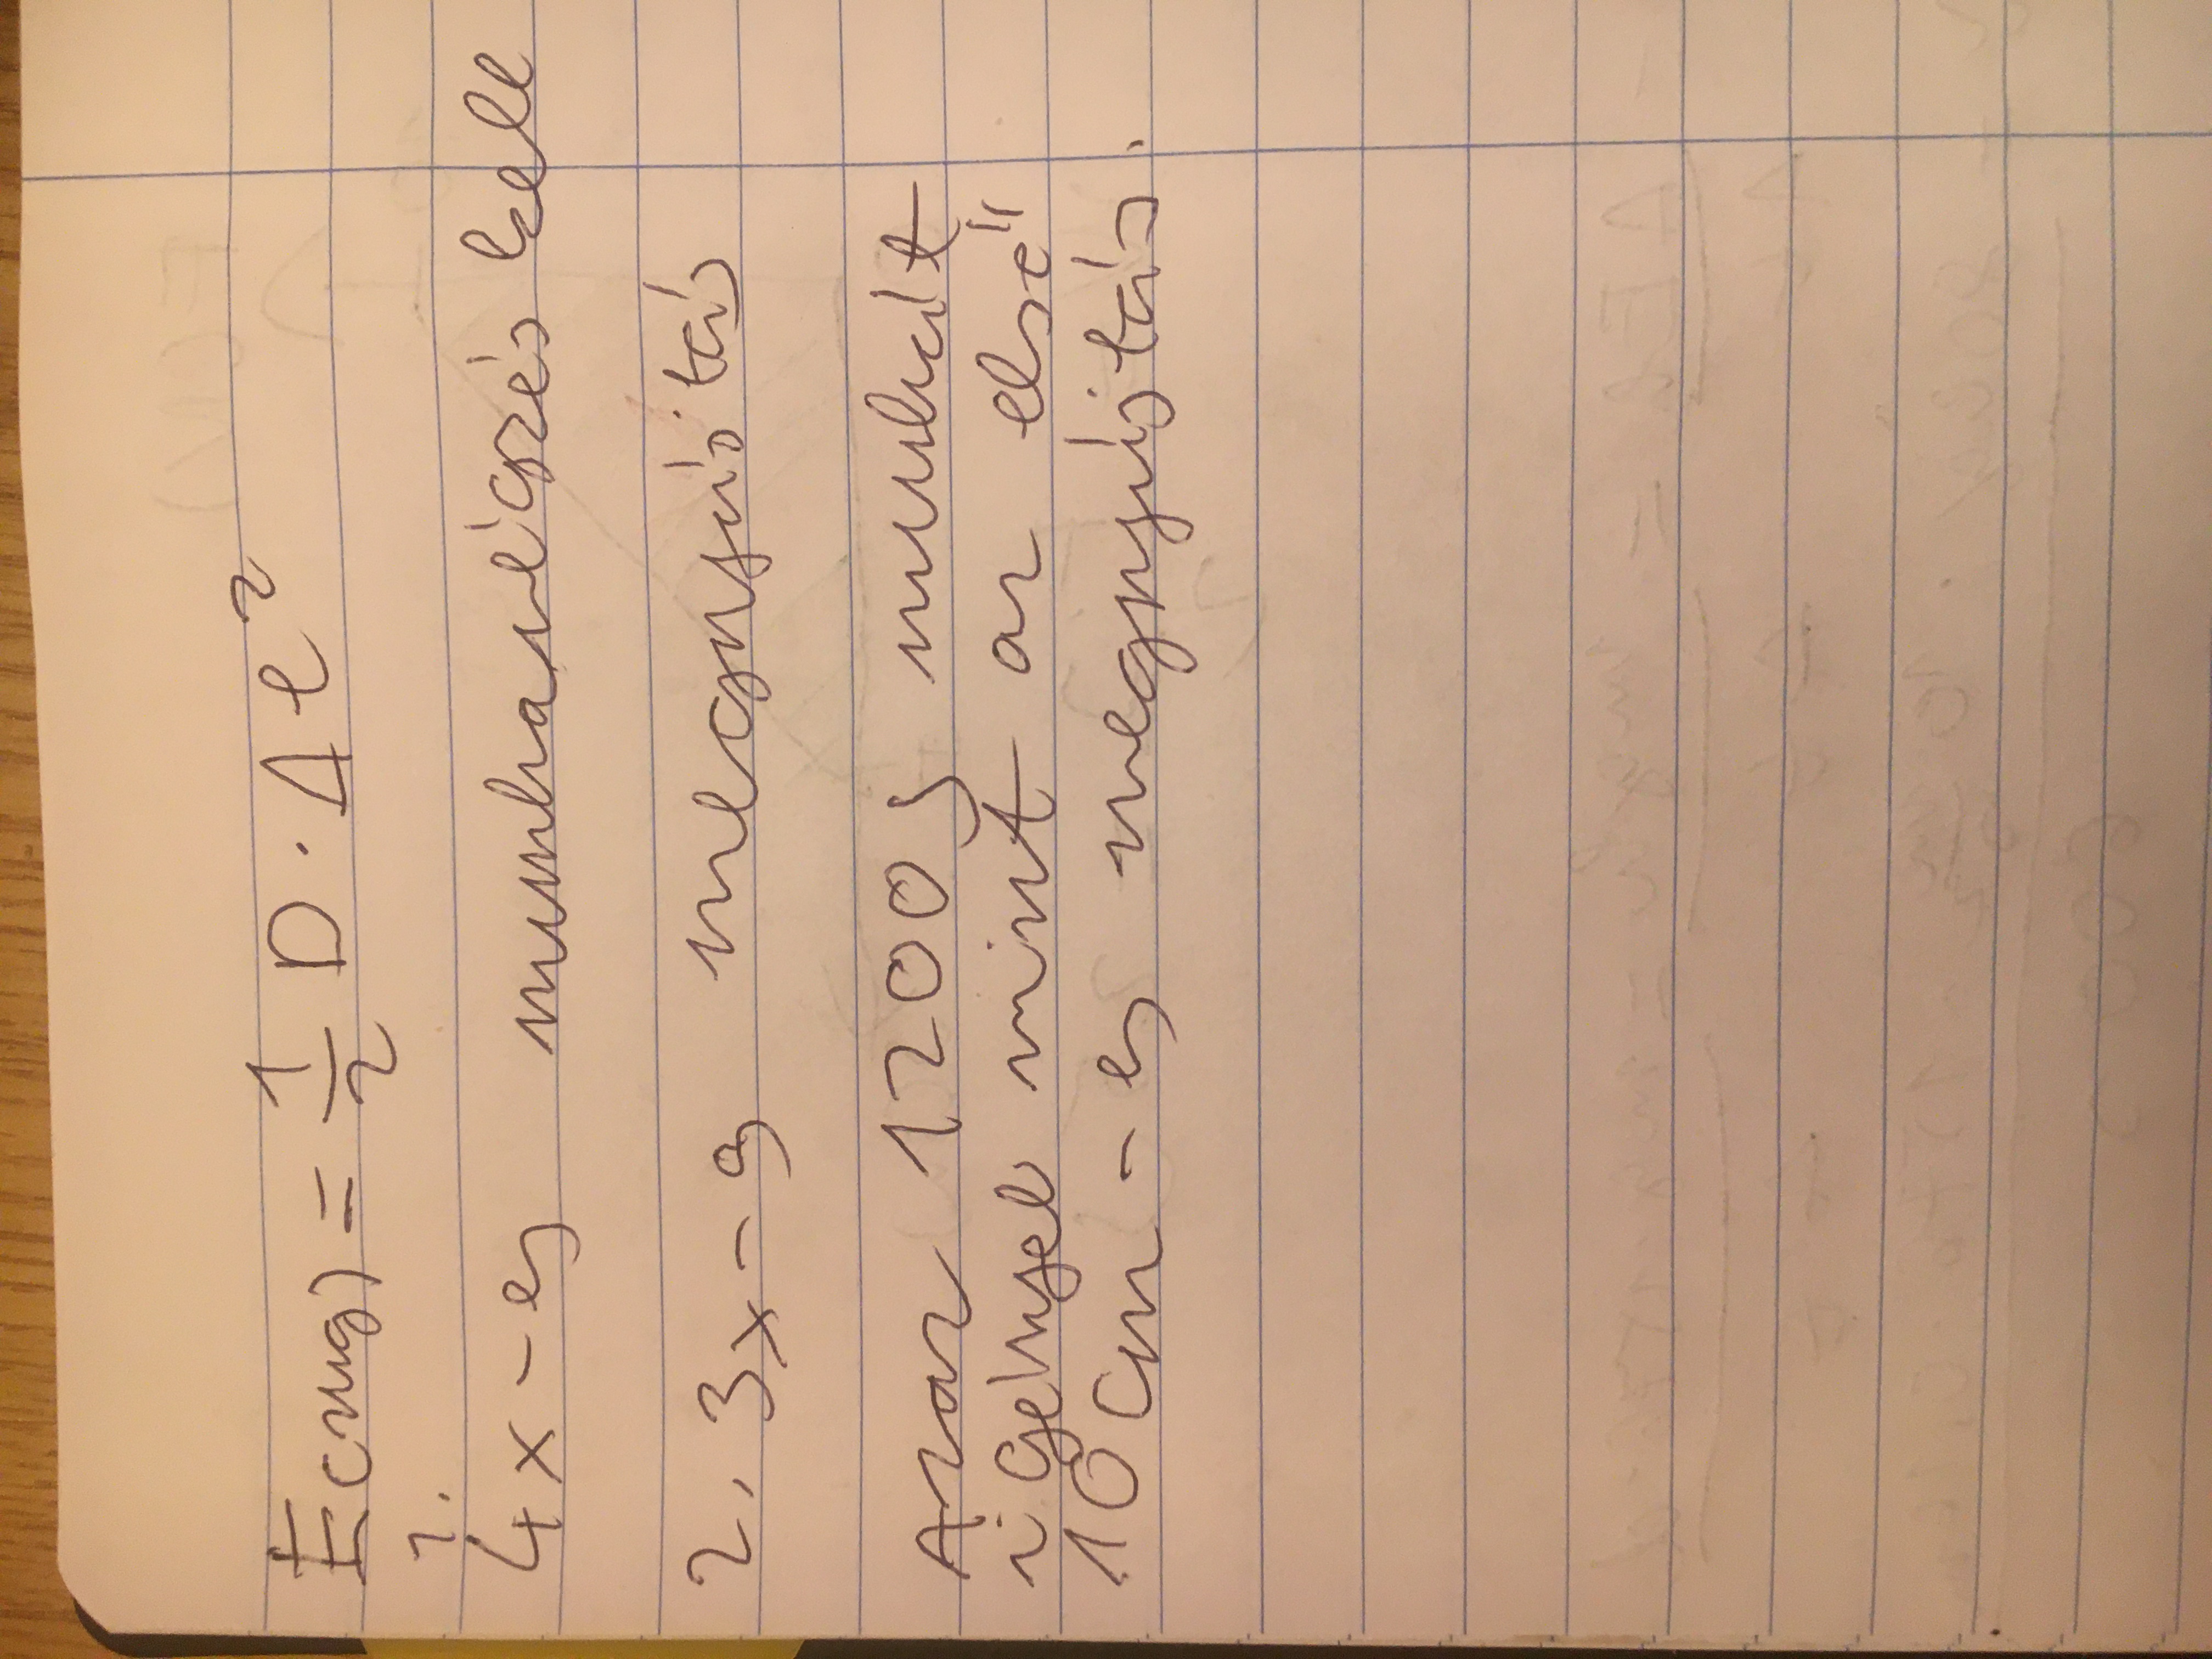 E(rug) = 1/2 D · Δl²
1.
4x-es munkavégzés kell
2, 3x-s megnyújtás
Azaz 1200J munkát
igényel mint az első
10cm-es megnyújtás.